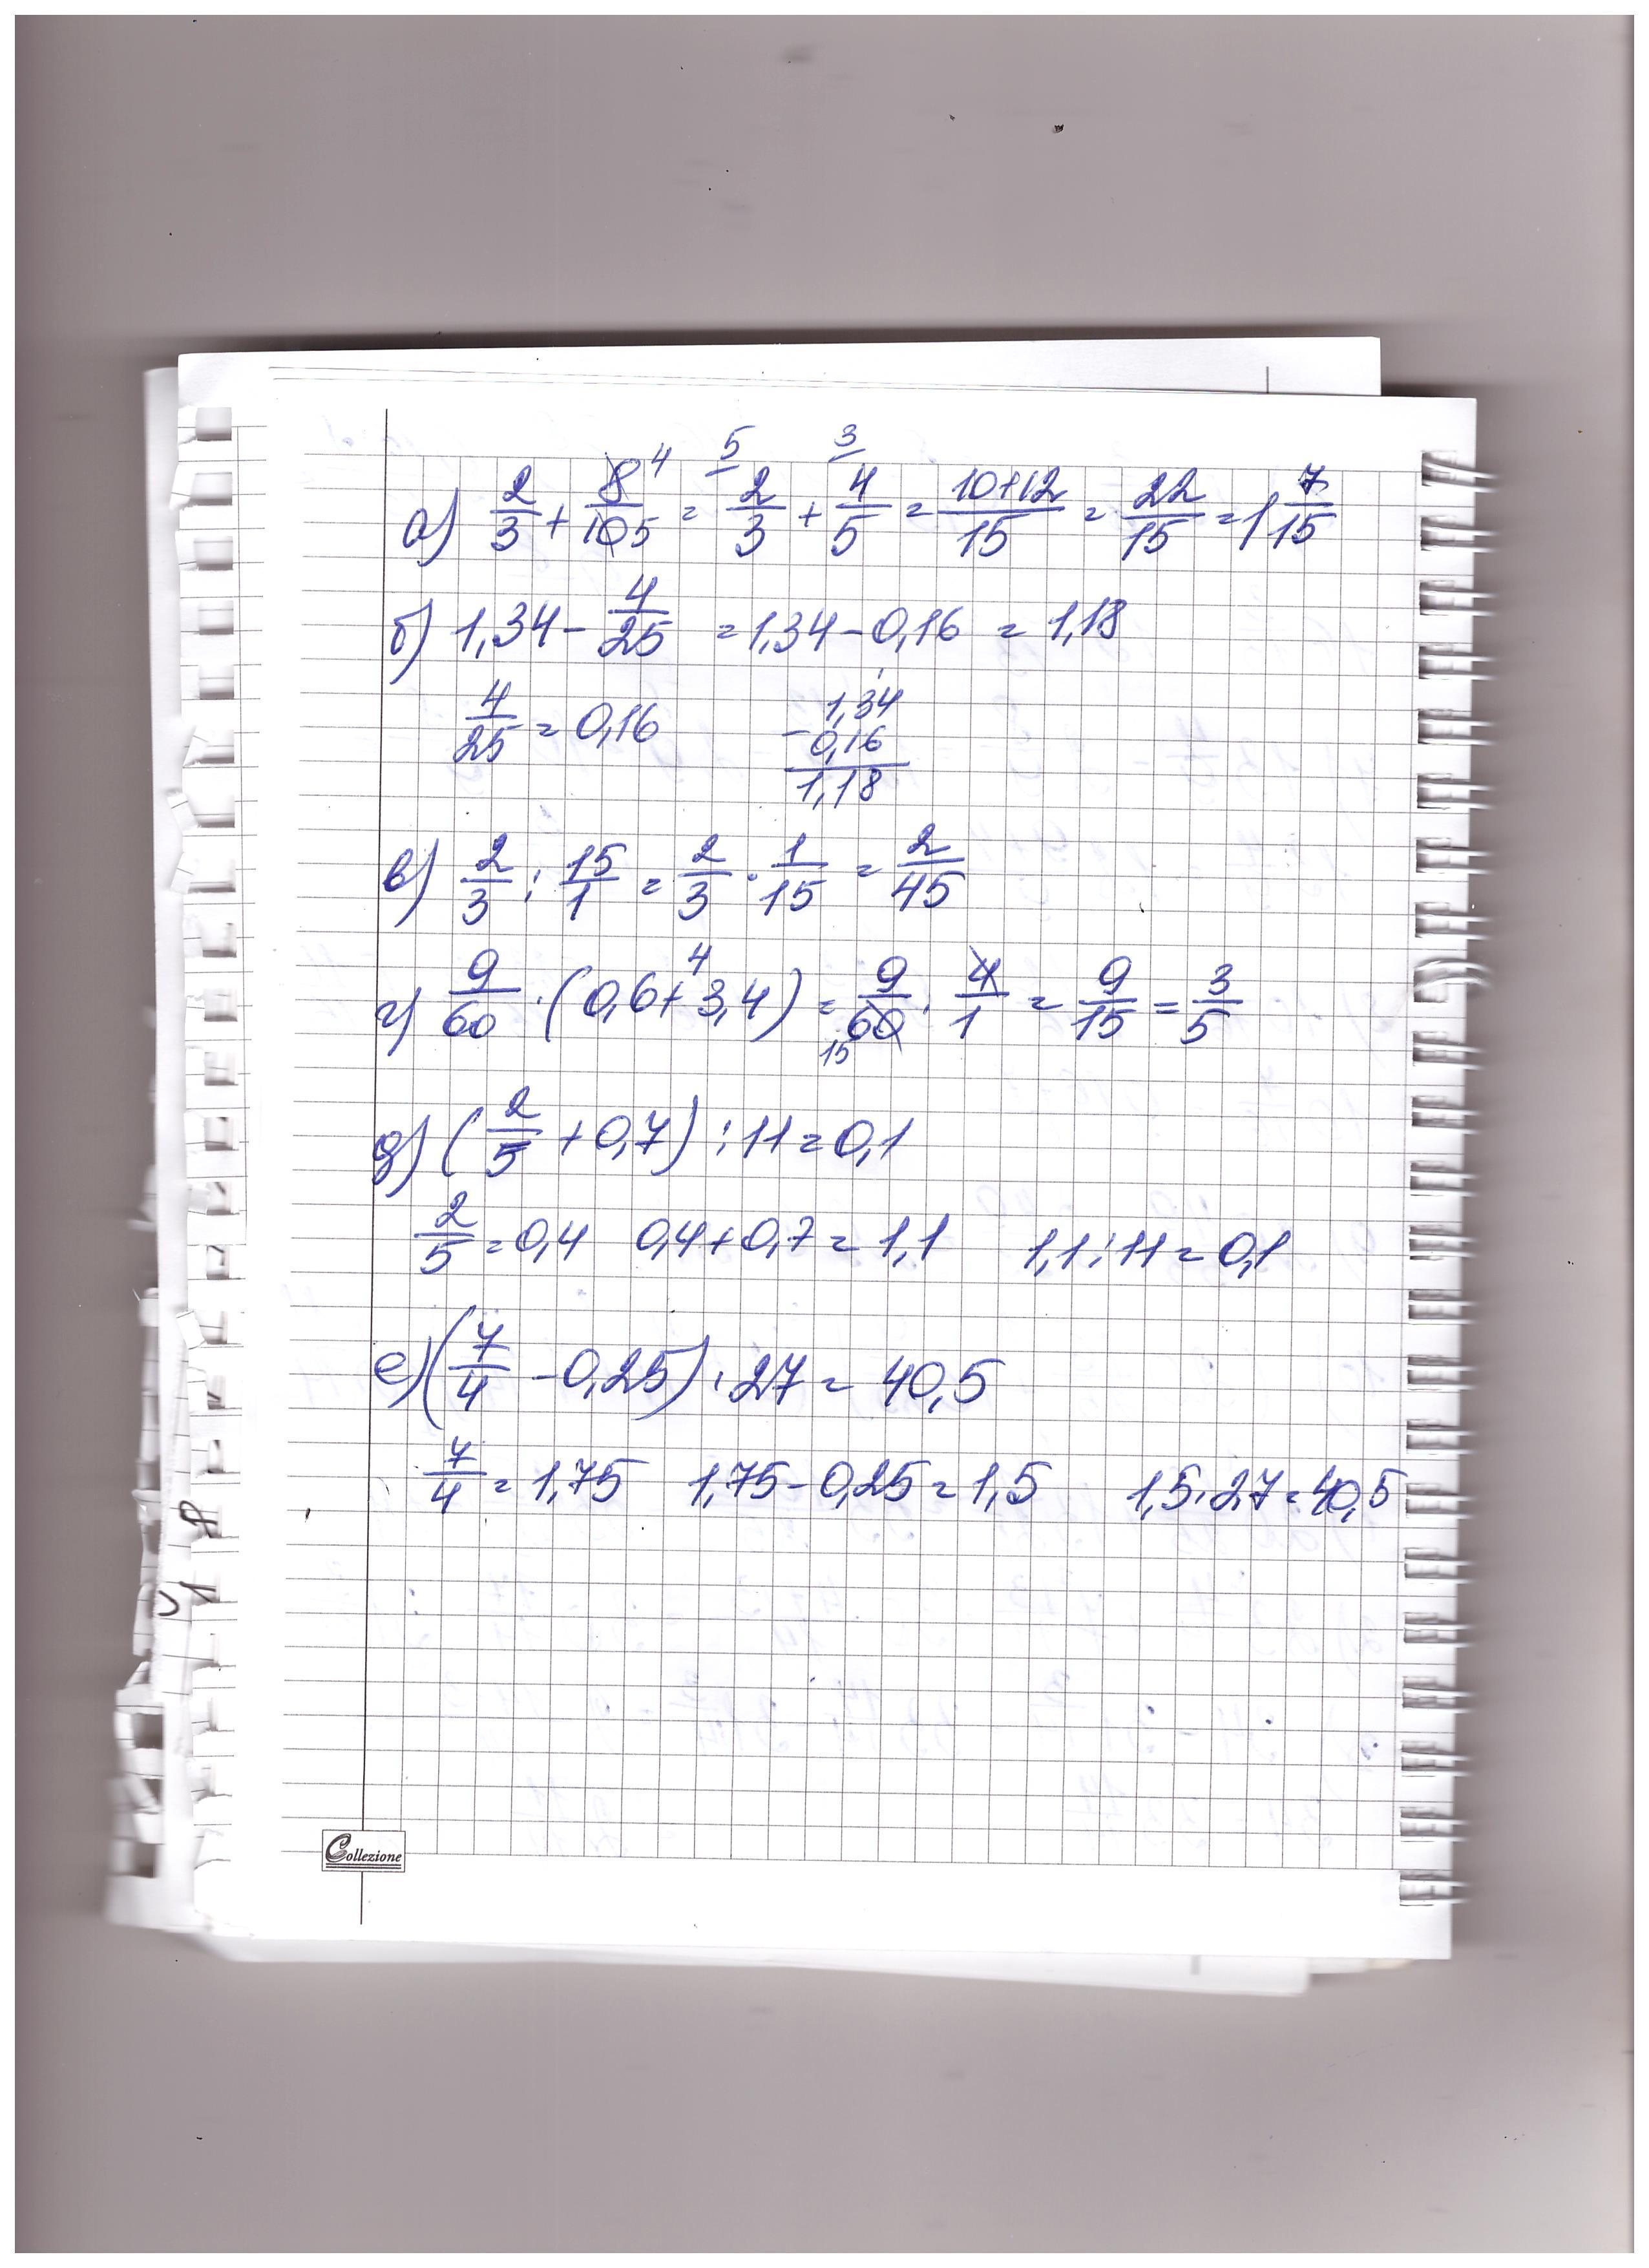 а) 2/3 + 8/10 4 5 = 5 2/3 + 3 4/5 = 10+12/15 = 22/15 = 1 7/15
б) 1,34 - 4/25 = 1,34 - 0,16 = 1,18
4/25 = 0,16
1,34
- 0,16
1,18
в) 2/3 : 15/1 = 2/3 · 1/15 = 2/45
г) 9/60 · (0,6 + 3,4) 4 = 9/60 15 · 4/1 = 9/15 = 3/5
д) (2/5 + 0,7) : 11 = 0,1
2/5 = 0,4 0,4 + 0,7 = 1,1 1,1 : 11 = 0,1
е) (7/4 - 0,25) · 27 = 40,5
7/4 = 1,75 1,75 - 0,25 = 1,5 1,5 · 27 = 40,5
Collezione